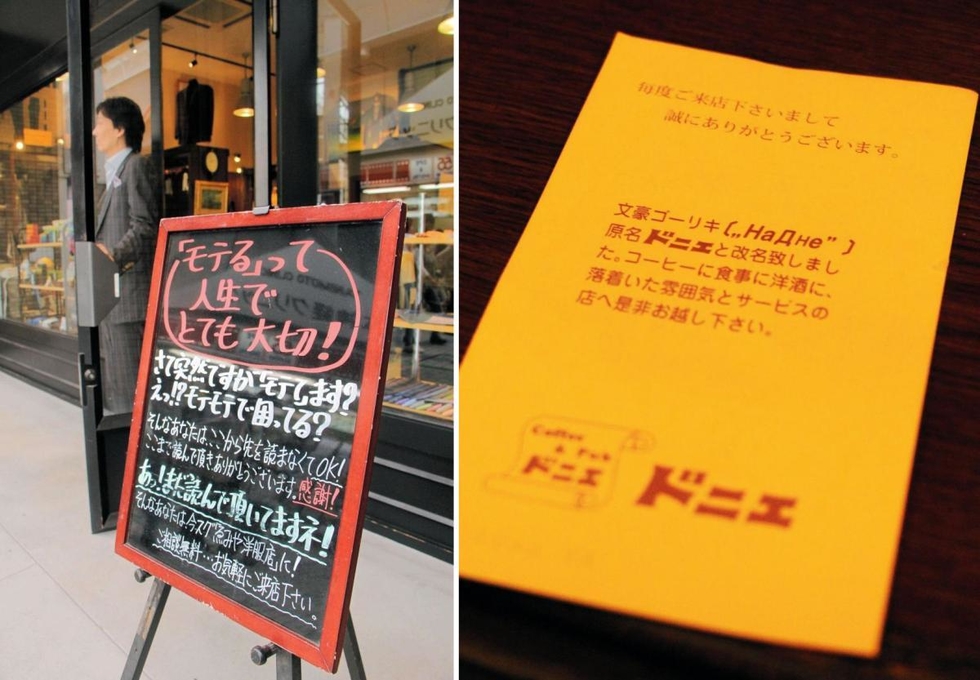 「モテる」って
人生で
とても大切!
さて突然ですが“モテ”します?
えっ!?モテモテで困ってる?
そんなあなたは、ここから先を読まなくてOK!
ここまで読んで頂きありがとうございます。感謝!
あっ!まだ読んで頂いてますネ!
そんなあなたは今スグゑみや洋服店に!
ご相談無料…お気軽にご来店下さい。
毎度ご来店下さいまして
誠にありがとうございます。
文豪ゴーリキ(„НаДне”)
原名ドニエと改名致しまし
た。コーヒーに食事に洋酒に、
落着いた雰囲気とサービスの
店へ是非お越し下さい。
Coffee
& Pub
ドニエ
ドニエ